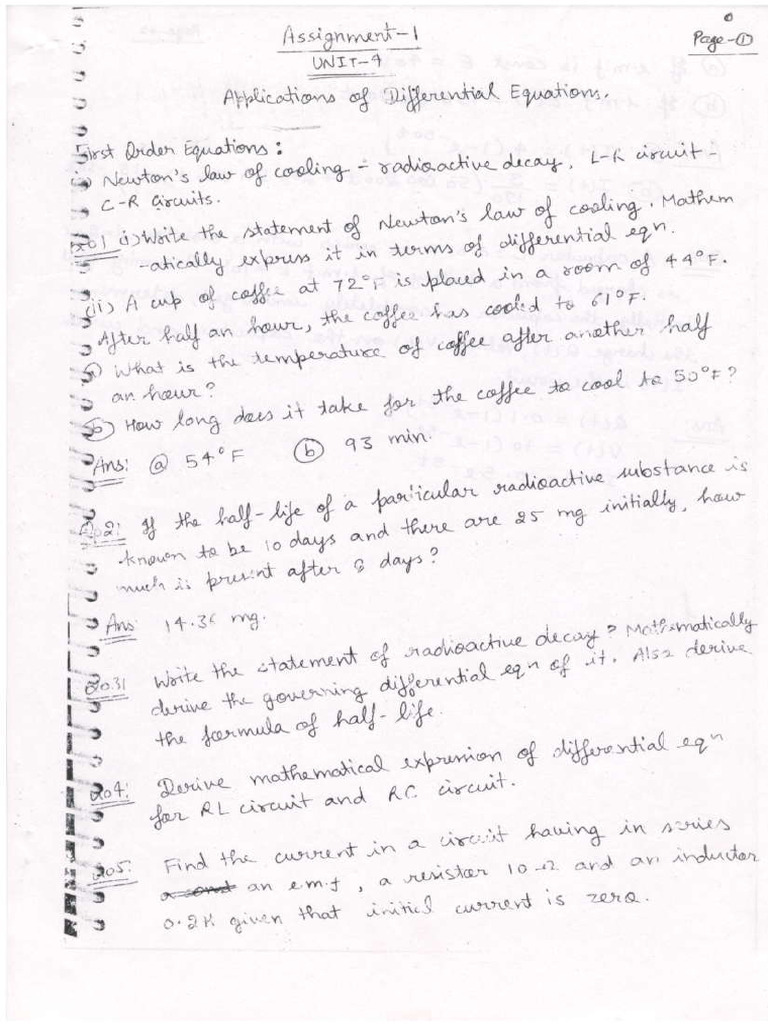 Assignment-1
Page-①
UNIT-4
Applications of Differential Equations.
First Order Equations:
Newton's law of cooling - radioactive decay, L-R circuit -
C-R circuits.
Q01 (i) Write the statement of Newton's law of cooling. Mathem
-atically express it in terms of differential eqn.
(ii) A cup of coffee at 72°F is placed in a room of 44°F.
After half an hour, the coffee has cooled to 61°F.
ⓐ What is the temperature of coffee after another half
an hour?
ⓑ How long does it take for the coffee to cool to 50°F?
Ans: ⓐ 54°F ⓑ 93 min.
Qo2: If the half-life of a particular radioactive substance is
known to be 10 days and there are 25 mg initially, how
much is present after 8 days?
Ans 14.36 mg.
Qo.3| Write the statement of radioactive decay? Mathematically
derive the governing differential eqn of it. Also derive
the formula of half-life.
Qo4: Derive mathematical expression of differential eqn
for RL circuit and RC circuit.
Qo5. Find the current in a circuit having in series
an e.m.f, a resistor 10Ω and an inductor
0.2H given that initial current is zero.